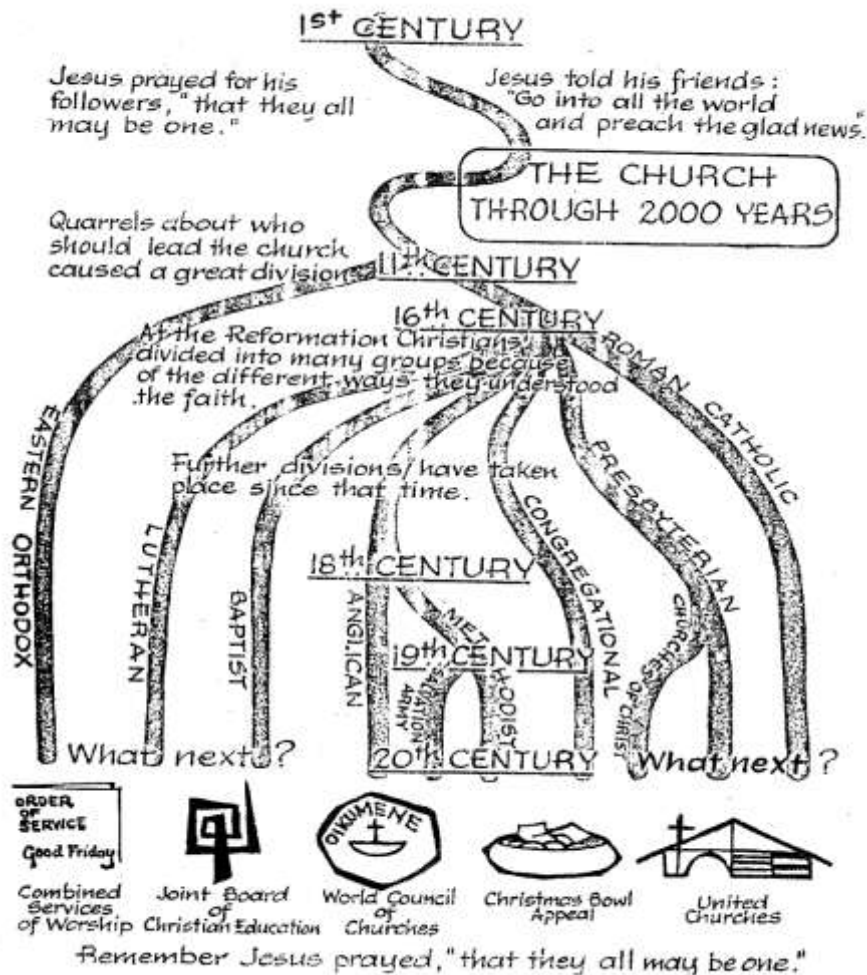 1st CENTURY
Jesus prayed for his
followers, "that they all
may be one."
Jesus told his friends:
"Go into all the world
and preach the glad news."
THE CHURCH
THROUGH 2000 YEARS
Quarrels about who
should lead the church
caused a great division
11th CENTURY
16th CENTURY
At the Reformation Christians
divided into many groups because
of the different ways they understood
the faith.
ROMAN CATHOLIC
EASTERN ORTHODOX
Further divisions have taken
place since that time.
LUTHERAN
BAPTIST
ANGLICAN
CONGREGATIONAL
PRESBYTERIAN
18th CENTURY
METHODIST
CHURCHES OF CHRIST
19th CENTURY
SALVATION
ARMY
What next?
20th CENTURY
What next?
ORDER
OF
SERVICE
Good Friday
OIKUMENE
Combined
Services
of Worship
Joint Board
of
Christian Education
World Council
of
Churches
Christmas Bowl
Appeal
United
Churches
Remember Jesus prayed, "that they all may be one."